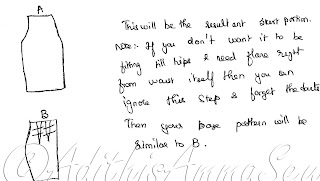 A
This will be the resultant skirt portion.
Note:- If you don't want it to be
fitting till hips & need flare right
from waist itself then you can
ignore this step & forget the darts
B
Then your base pattern will be
similar to B.
©Adithis Amma Sew